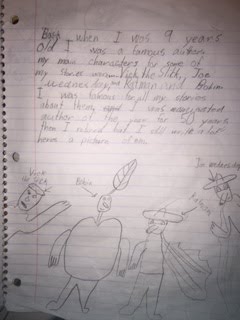 when I was 9 years
old I was a famous authors
my main characters by some of
my stories were Vick the Stick, Joe
wednesday and Ratman and Robin
I was famous for all my stories
about them and I was many voted
author of the year for 50 years
then I retired but I still write a lot
heres a picture of the
Joe wednesday
Vick
the stick
Robin
Ratman